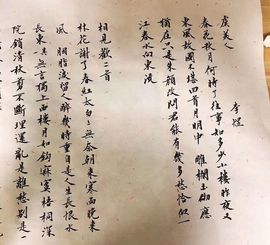 虞美人 李煜
春花秋月何時了往事知多少小樓昨夜又
東風故國不堪回首月明中 雕欄玉砌應
猶在只是朱顏改問君能有幾多愁恰似一
江春水向東流
相見歡二首
林花謝了春紅太匆匆無奈朝來寒雨晚來
風 胭脂淚留人醉幾時重自是人生長恨水
長東 無言獨上西樓月如鉤寂寞梧桐深
院鎖清秋剪不斷理還亂是離愁別是一